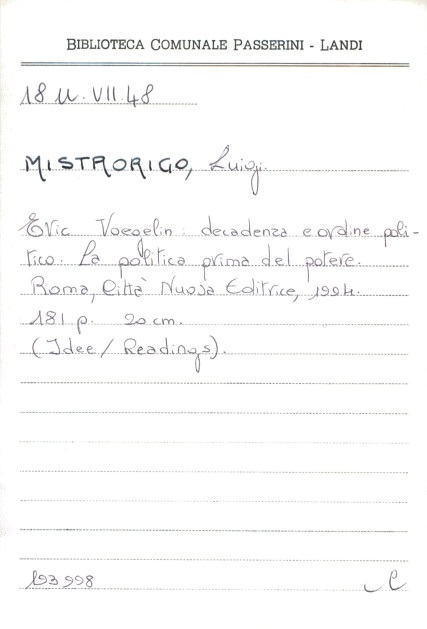 BIBLIOTECA COMUNALE PASSERINI - LANDI
18 U. VII. 48
MISTRORIGO, Luigi.
Eric Voegelin: decadenza e ordine poli-
tico. La politica prima del potere.
Roma, Città Nuova Editrice, 1994.
181 p. 20 cm.
(Idee / Readings).
193998